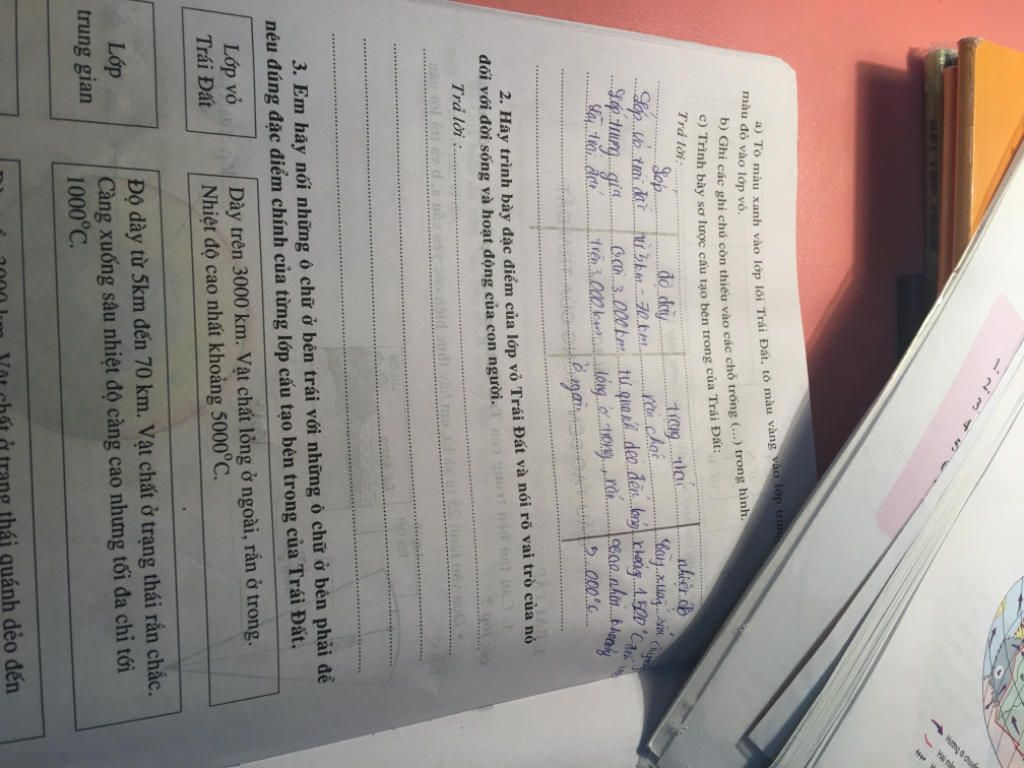 a) Tô màu xanh vào lớp lõi Trái Đất, tô màu vàng vào lớp trung
màu đỏ vào lớp vỏ.
b) Ghi các ghi chú còn thiếu vào các chỗ trống (...) trong hình
c) Trình bày sơ lược cấu tạo bên trong của Trái Đất:
Trả lời:
Lớp độ dày trạng thái nhiệt độ
Lớp vỏ trái đất từ 5km - 70 km rắn chắc
Lớp trung gia gần 3.000km từ quánh dẻo đến lỏng khoảng 1.500°C đến
trên 3.000km lỏng ở trong, rắn cao nhất khoảng
ở ngoài 5.000°C
2. Hãy trình bày đặc điểm của lớp vỏ Trái Đất và nói rõ vai trò của nó
đối với đời sống và hoạt động của con người.
Trả lời :
3. Em hãy nối những ô chữ ở bên trái với những ô chữ ở bên phải để
nêu đúng đặc điểm chính của từng lớp cấu tạo bên trong của Trái Đất.
Lớp vỏ
Trái Đất
Dày trên 3000 km. Vật chất lỏng ở ngoài, rắn ở trong.
Nhiệt độ cao nhất khoảng 5000°C.
Lớp
trung gian
Độ dày từ 5km đến 70 km. Vật chất ở trạng thái rắn chắc.
Càng xuống sâu nhiệt độ càng cao nhưng tối đa chỉ tới
1000°C.
3000 km. Vật chất ở trạng thái quánh dẻo đến
1.
2.
3
4
5